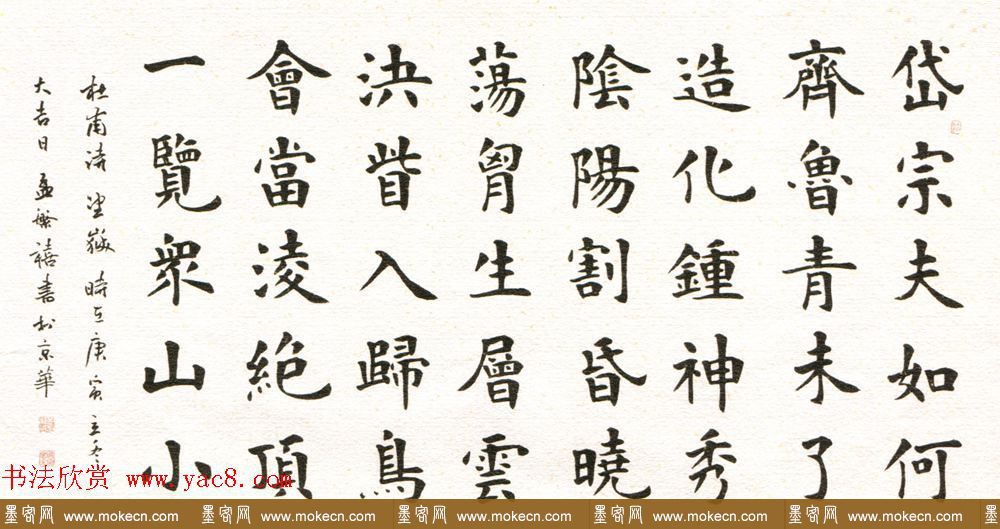 岱宗夫如何
齊魯青未了
造化鍾神秀
陰陽割昏曉
蕩胷生層雲
決眥入歸鳥
會當淩絕頂
一覽眾山小
杜甫詩望嶽時在庚寅立冬
大吉日孟繁禧書於京華
书法欣赏 www.yac8.com
墨客网 www.mokecn.com 墨客网 www.mokecn.com 墨客网 www.mokecn.com 墨客网 www.mokecn.com